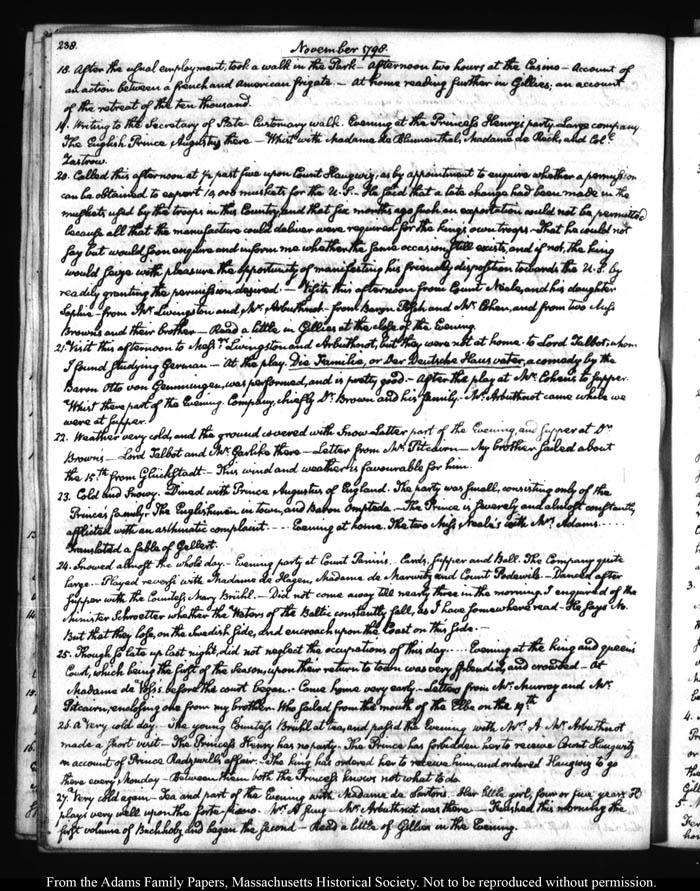 238.
November 1798.
18. After the usual employment, took a walk in the Park — Afternoon two hours at the Casino — Account of
an action between a French and American frigate. — At home reading further in Gillies; an account
of the retreat of the ten thousand.
19. Writing to the Secretary of State. Customary walk. Evening at the Princess Henry's party. Large company
The English Prince Augustus there — Whist with Madame de Blumenthal, Madame de Reck, and Col.
Zastrow.
20. Called this afternoon at ½ past five upon Count Haugwitz; as by appointment to enquire whether a permission
can be obtained to export 10,000 muskets for the U.S. — He said that a late change had been made in the
muskets used by the troops in this Country, and that six months ago such an exportation would not be permitted
because all that the manufacture could deliver were required for the king's own troops — That he could not
say but would soon enquire and inform me whether the same occasion still exists, and if not, the king
would seize with pleasure the opportunity of manifesting his friendly disposition towards the U.S. by
readily granting the permission desired. — Visits this afternoon from Count Neale, and his daughter
Sophie — from Mr. Livingston and Mr. Arbuthnot — from Baron and Mr. Cohen, and from two Miss
Browns and their brother — Read a little in Gillies at the close of the Evening.
21. Visit this afternoon to Messrs. Livingston and Arbuthnot, but they were not at home — to Lord Talbot; whom
I found studying German — At the play. Die Familie, or Der Deutsche Hausvater, a comedy by the
Baron Otto von Gemmingen, was performed, and is pretty good — After the play at Mr. Cohen's to supper.
Whist there part of the Evening. Company, chiefly Dr. Brown and his family. Mr. Arbuthnot came while we
were at supper.
22. Weather very cold, and the ground covered with Snow. Latter part of the Evening, and supper at Dr.
Brown's — Lord Talbot and Mr. Garlike there — Letter from Mr. Pitcairn — My brother sailed about
the 15th from Glückstadt — This wind and weather is favourable for him.
23. Cold and Snowy. Dined with Prince Augustus of England. The party was small, consisting only of the
Prince's family. The Englishmen in town, and Baron Ompteda — The Prince is severely and almost constantly
afflicted with an asthmatic complaint. . . . Evening at home. The two Miss Neale's with Mrs. Adams. . . .
Translated a fable of Gellert.
24. Snowed almost the whole day — Evening party at Count Panin's. Cards, supper and Ball. The Company quite
large — Played reversi with Madame de Hagen, Madame de Marwitz and Count Podewils — Danced after
supper with the Countess Mary Brühl. — Did not come away till nearly three in the morning. I enquired of the
Minister Schroetter whether the Waters of the Baltic constantly fall, as I have somewhere read — He says No.
But that they lose, on the Swedish side, and encroach upon the Coast on this side. —
25. Though so late up last night, did not neglect the occupations of this day. . . . Evening at the king and queen's
Court, which being the first of the Season upon their return to town was very splendid, and crowded — At
Madame de Voss. before the court began. Came home very early — Letters from Mr. Murray and Mr.
Pitcairn, enclosing one from my brother. Who sailed from the mouth of the Elbe on the 19th
26. A very cold day. — The young Countess Brühl at tea, and passed the Evening with Mrs. A. Mr. Arbuthnot
made a short visit — The Princess Henry has no party. The Prince has forbidden her to receive Count Haugwitz
on account of Prince Radzivill's affair. The king has ordered her to receive him, and ordered Haugwitz to go
there every Monday — Between them both the Princess knows not what to do.
27. Very cold again — Tea and part of the Evening with Madame de Sartoris. Her little girl, four or five years old
plays very well upon the forte-piano. Mrs. A. sung — Mr. Arbuthnot was there — Finished this morning the
first volume of Buchholz and began the second — Read a little of Gillies in the Evening.
From the Adams Family Papers, Massachusetts Historical Society. Not to be reproduced without permission.